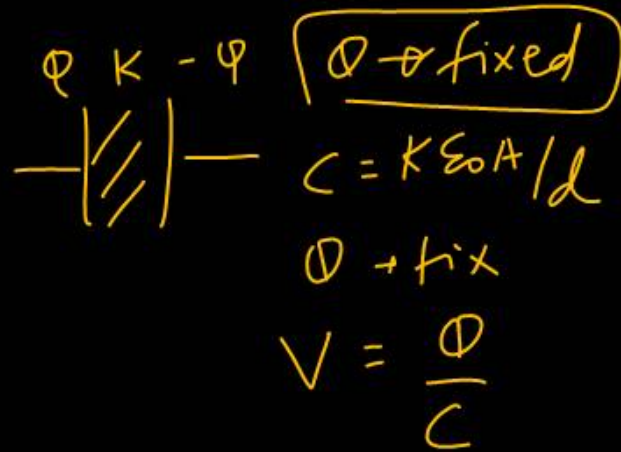 Q K - Q
Q → fixed
C = Kε₀A/d
Q → fix
V = Q/C